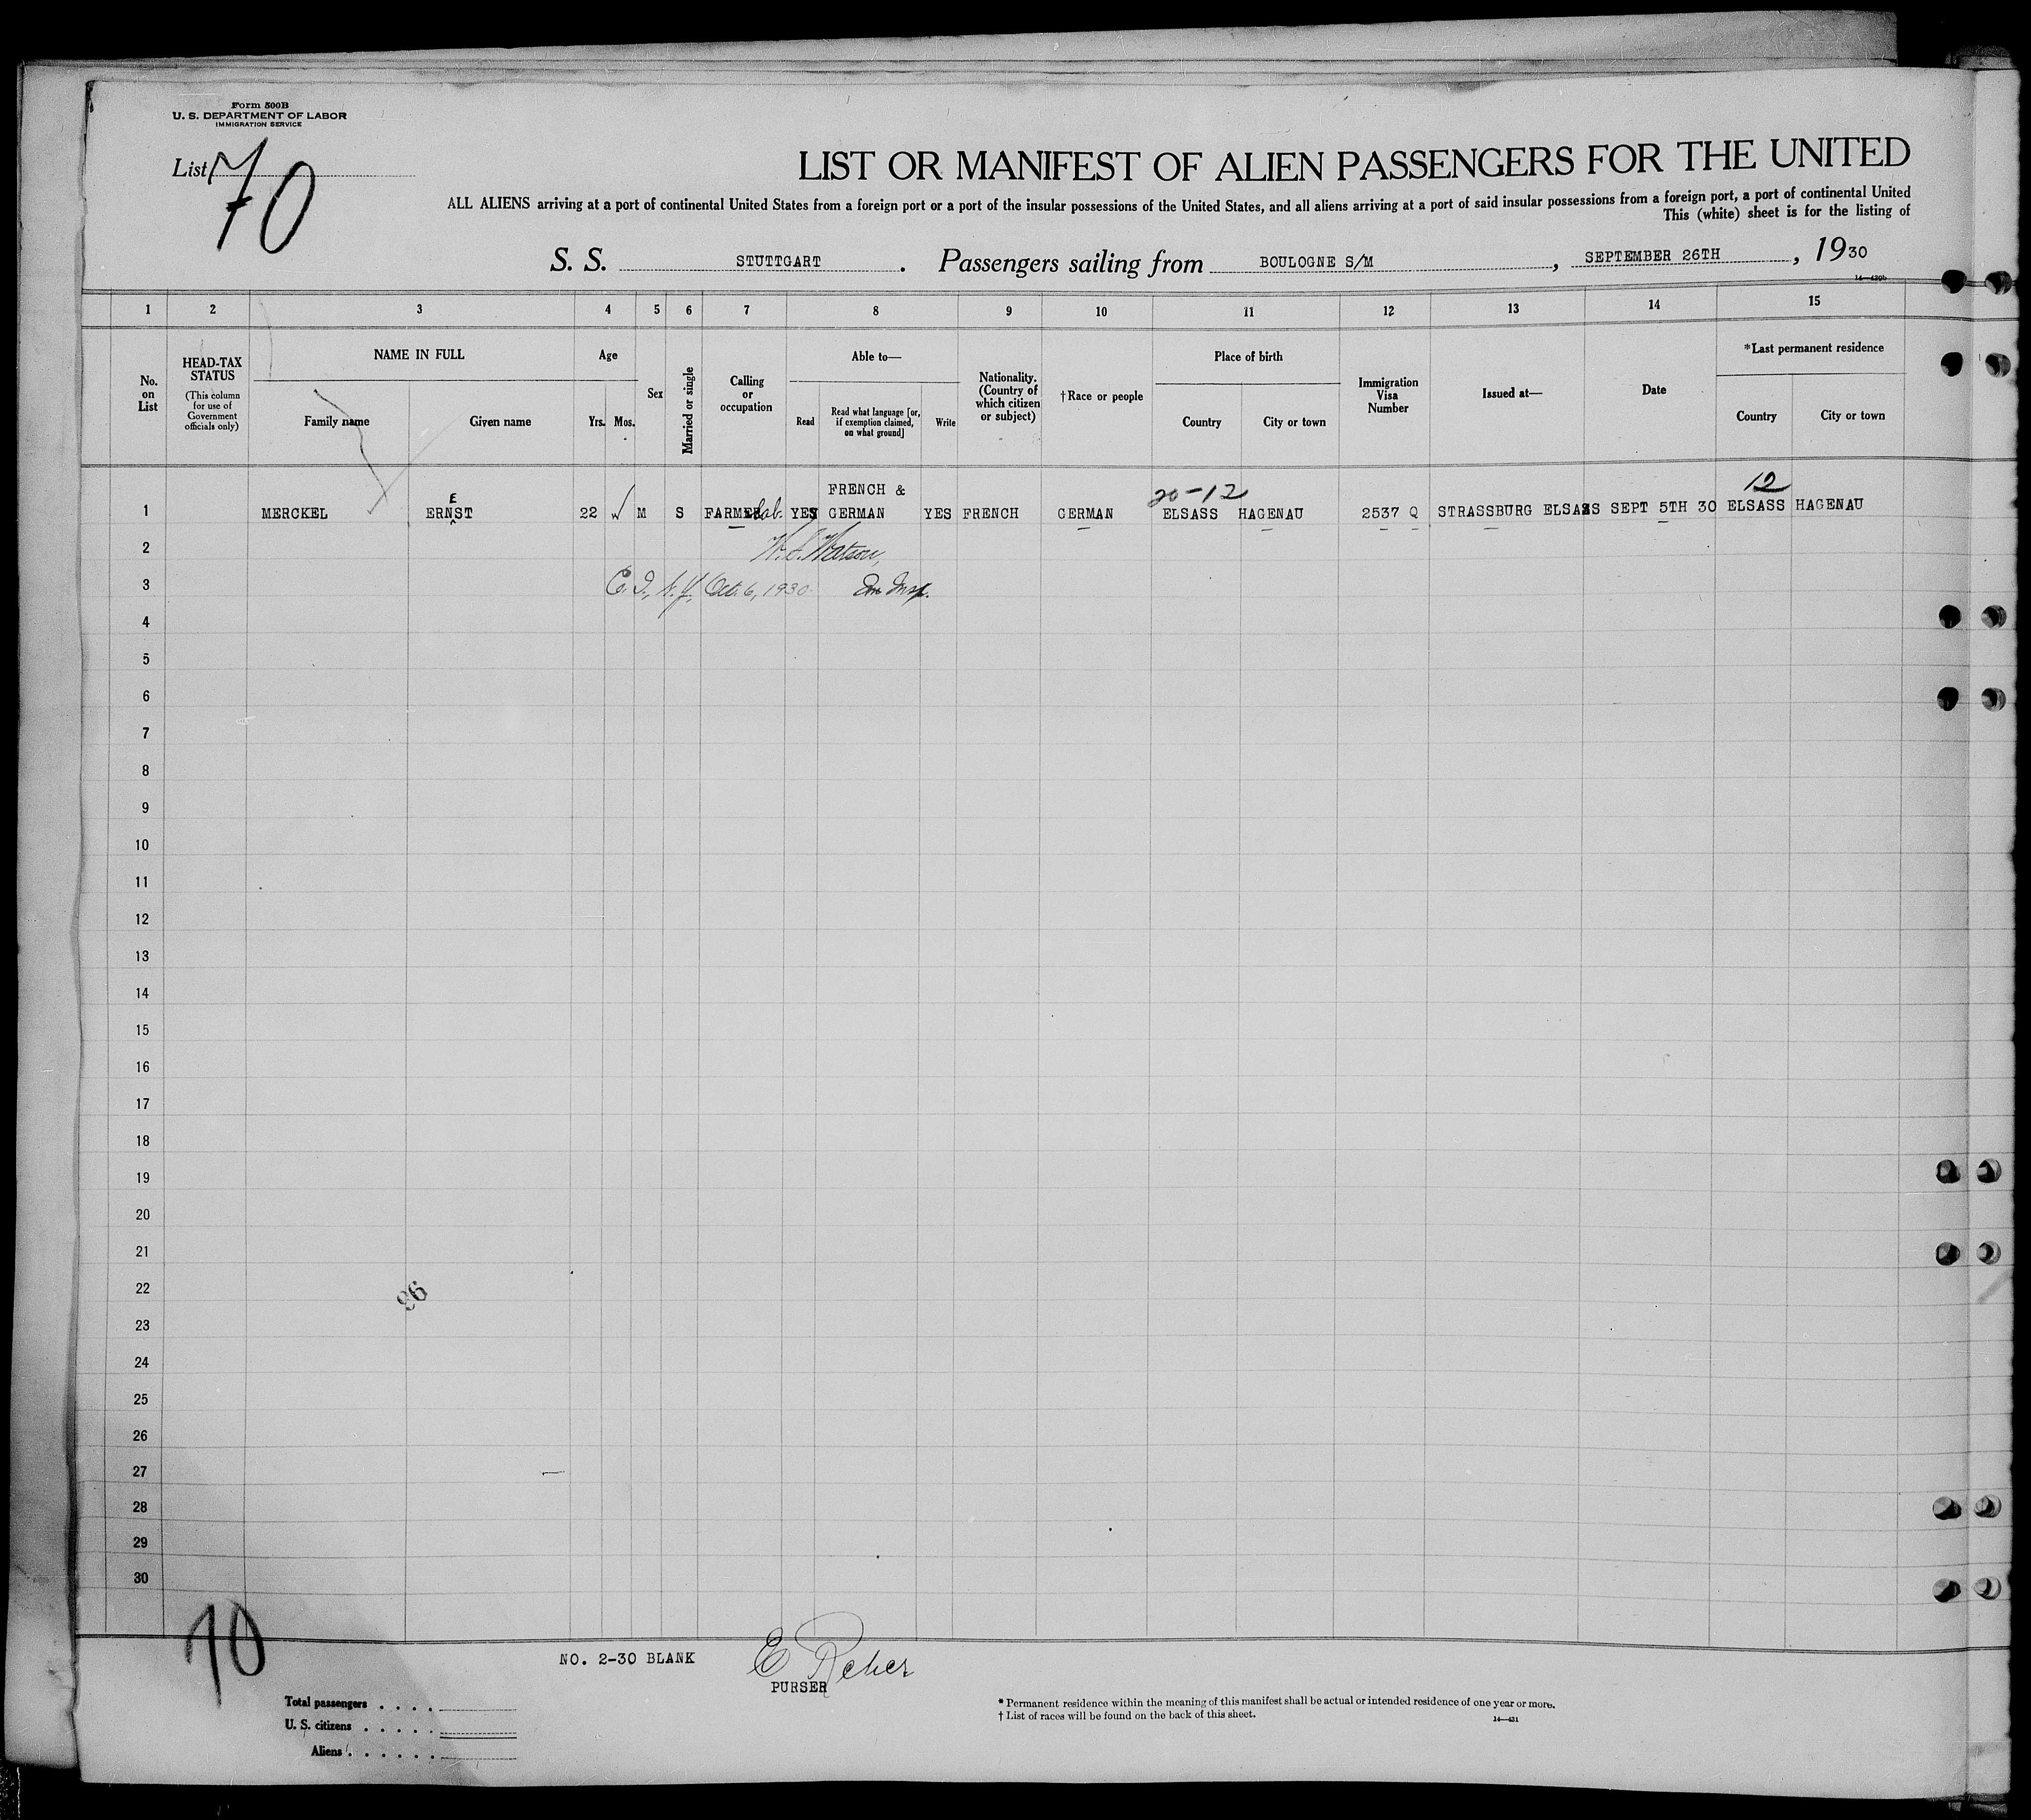 Form 500B
U. S. DEPARTMENT OF LABOR
IMMIGRATION SERVICE
List 70
LIST OR MANIFEST OF ALIEN PASSENGERS FOR THE UNITED
ALL ALIENS arriving at a port of continental United States from a foreign port or a port of the insular possessions of the United States, and all aliens arriving at a port of said insular possessions from a foreign port, a port of continental United
This (white) sheet is for the listing of
S. S. STUTTGART . Passengers sailing from BOULOGNE S/M , SEPTEMBER 26TH , 1930
14—430b
1 2 3 4 5 6 7 8 9 10 11 12 13 14 15
No. on List
HEAD-TAX STATUS
(This column for use of Government officials only)
NAME IN FULL
Family name
Given name
Age
Yrs. Mos.
Sex
Married or single
Calling or occupation
Able to—
Read
Read what language [or, if exemption claimed, on what ground]
Write
Nationality. (Country of which citizen or subject)
†Race or people
Place of birth
Country
City or town
Immigration Visa Number
Issued at—
Date
*Last permanent residence
Country
City or town
20-12
12
E
FRENCH &
1 MERCKEL ERNST 22 M S FARMER lab. YES GERMAN YES FRENCH GERMAN ELSASS HAGENAU 2537 Q STRASSBURG ELSASS SEPT 5TH 30 ELSASS HAGENAU
2 Watson,
3 E. I., N. Y. Oct. 6, 1930. Im Insp.
4
5
6
7
8
9
10
11
12
13
14
15
16
17
18
19
20
21
22
96
23
24
25
26
27
28
29
30
70
NO. 2-30 BLANK
E Reher
PURSER
Total passengers . . . .
U. S. citizens . . . . .
Aliens . . . . . .
* Permanent residence within the meaning of this manifest shall be actual or intended residence of one year or more.
† List of races will be found on the back of this sheet.
14—431